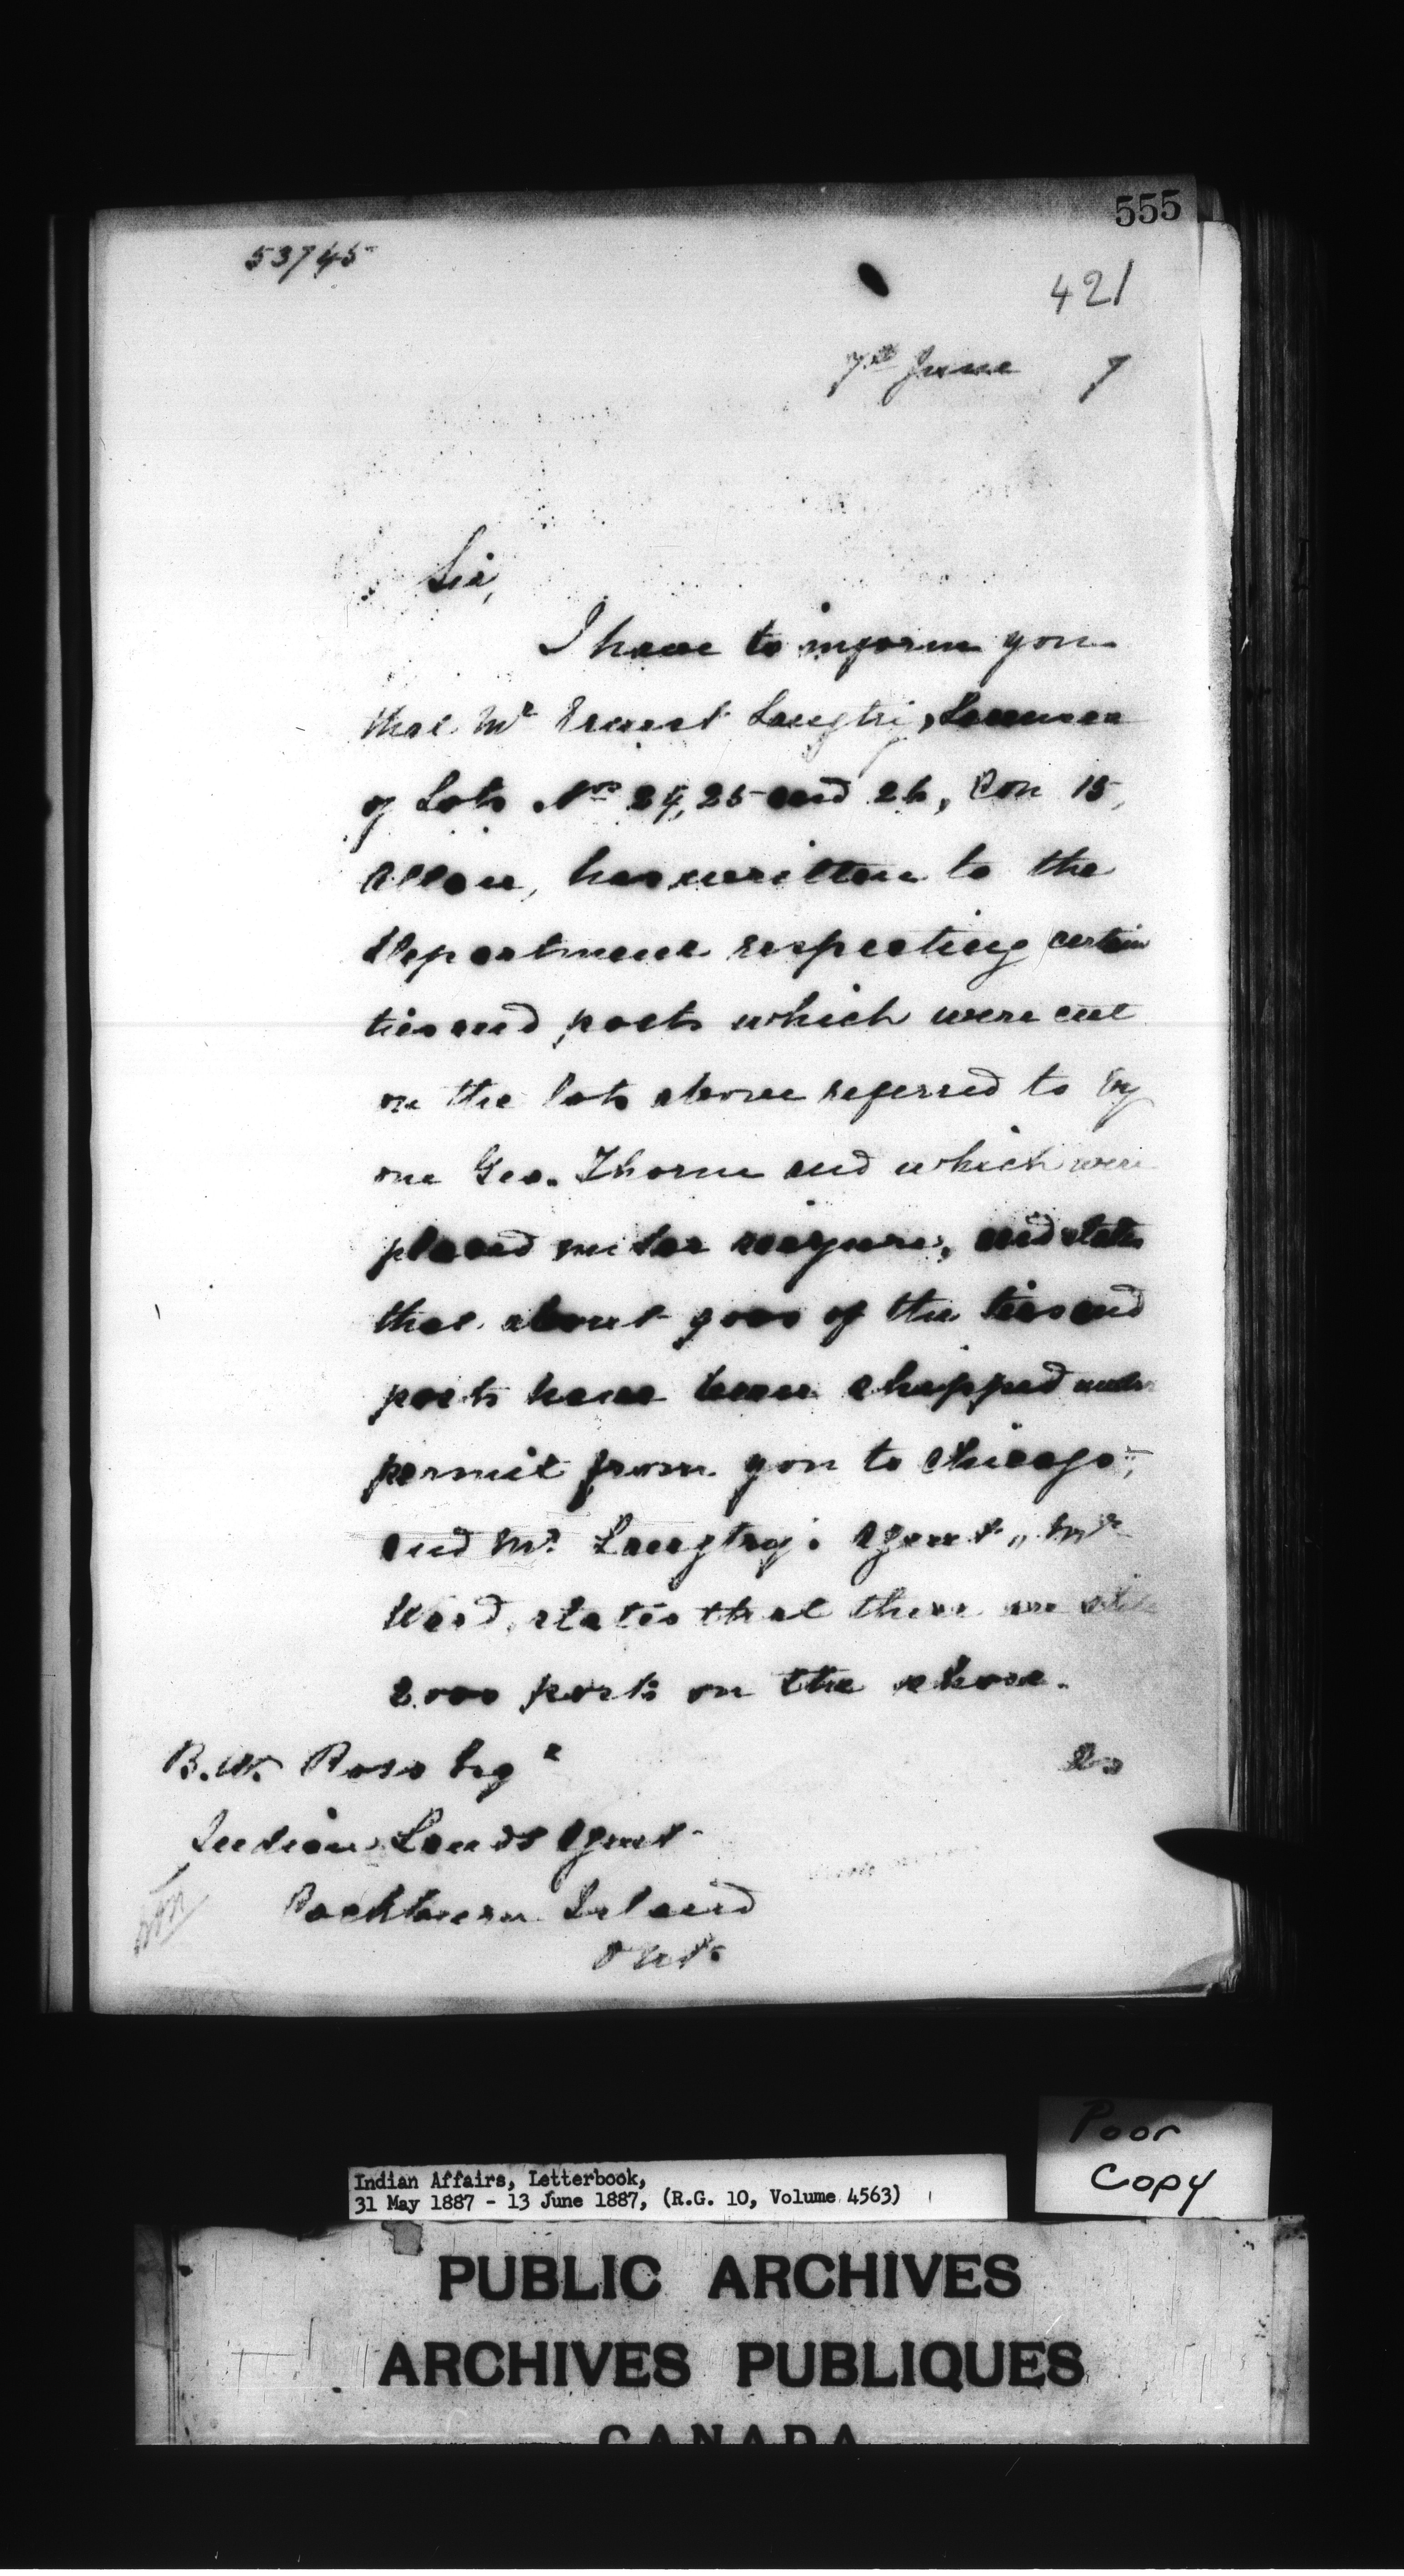 555
53745
421
7th June 7
Sir,
I have to inform you
that Mr Ernest Langtry, Licensee
of Lots Nos 24, 25 and 26, Con 15,
Allan, has written to the
Department respecting certain
ties and posts which were cut
on the lots above referred to by
one Geo. Thorne and which were
placed under seizure, and states
that about 9000 of the ties and
posts have been shipped under
permit from you to Chicago;
and Mr. Langtry's Agent, Mr
Ward, states that there are still
2000 posts on the shore.
B. W. Ross Esqr
Indian Lands Agent
Cockburn Island
Ont.
Poor
Copy
Indian Affairs, Letterbook,
31 May 1887 - 13 June 1887, (R.G. 10, Volume 4563)
PUBLIC ARCHIVES
ARCHIVES PUBLIQUES
CANADA